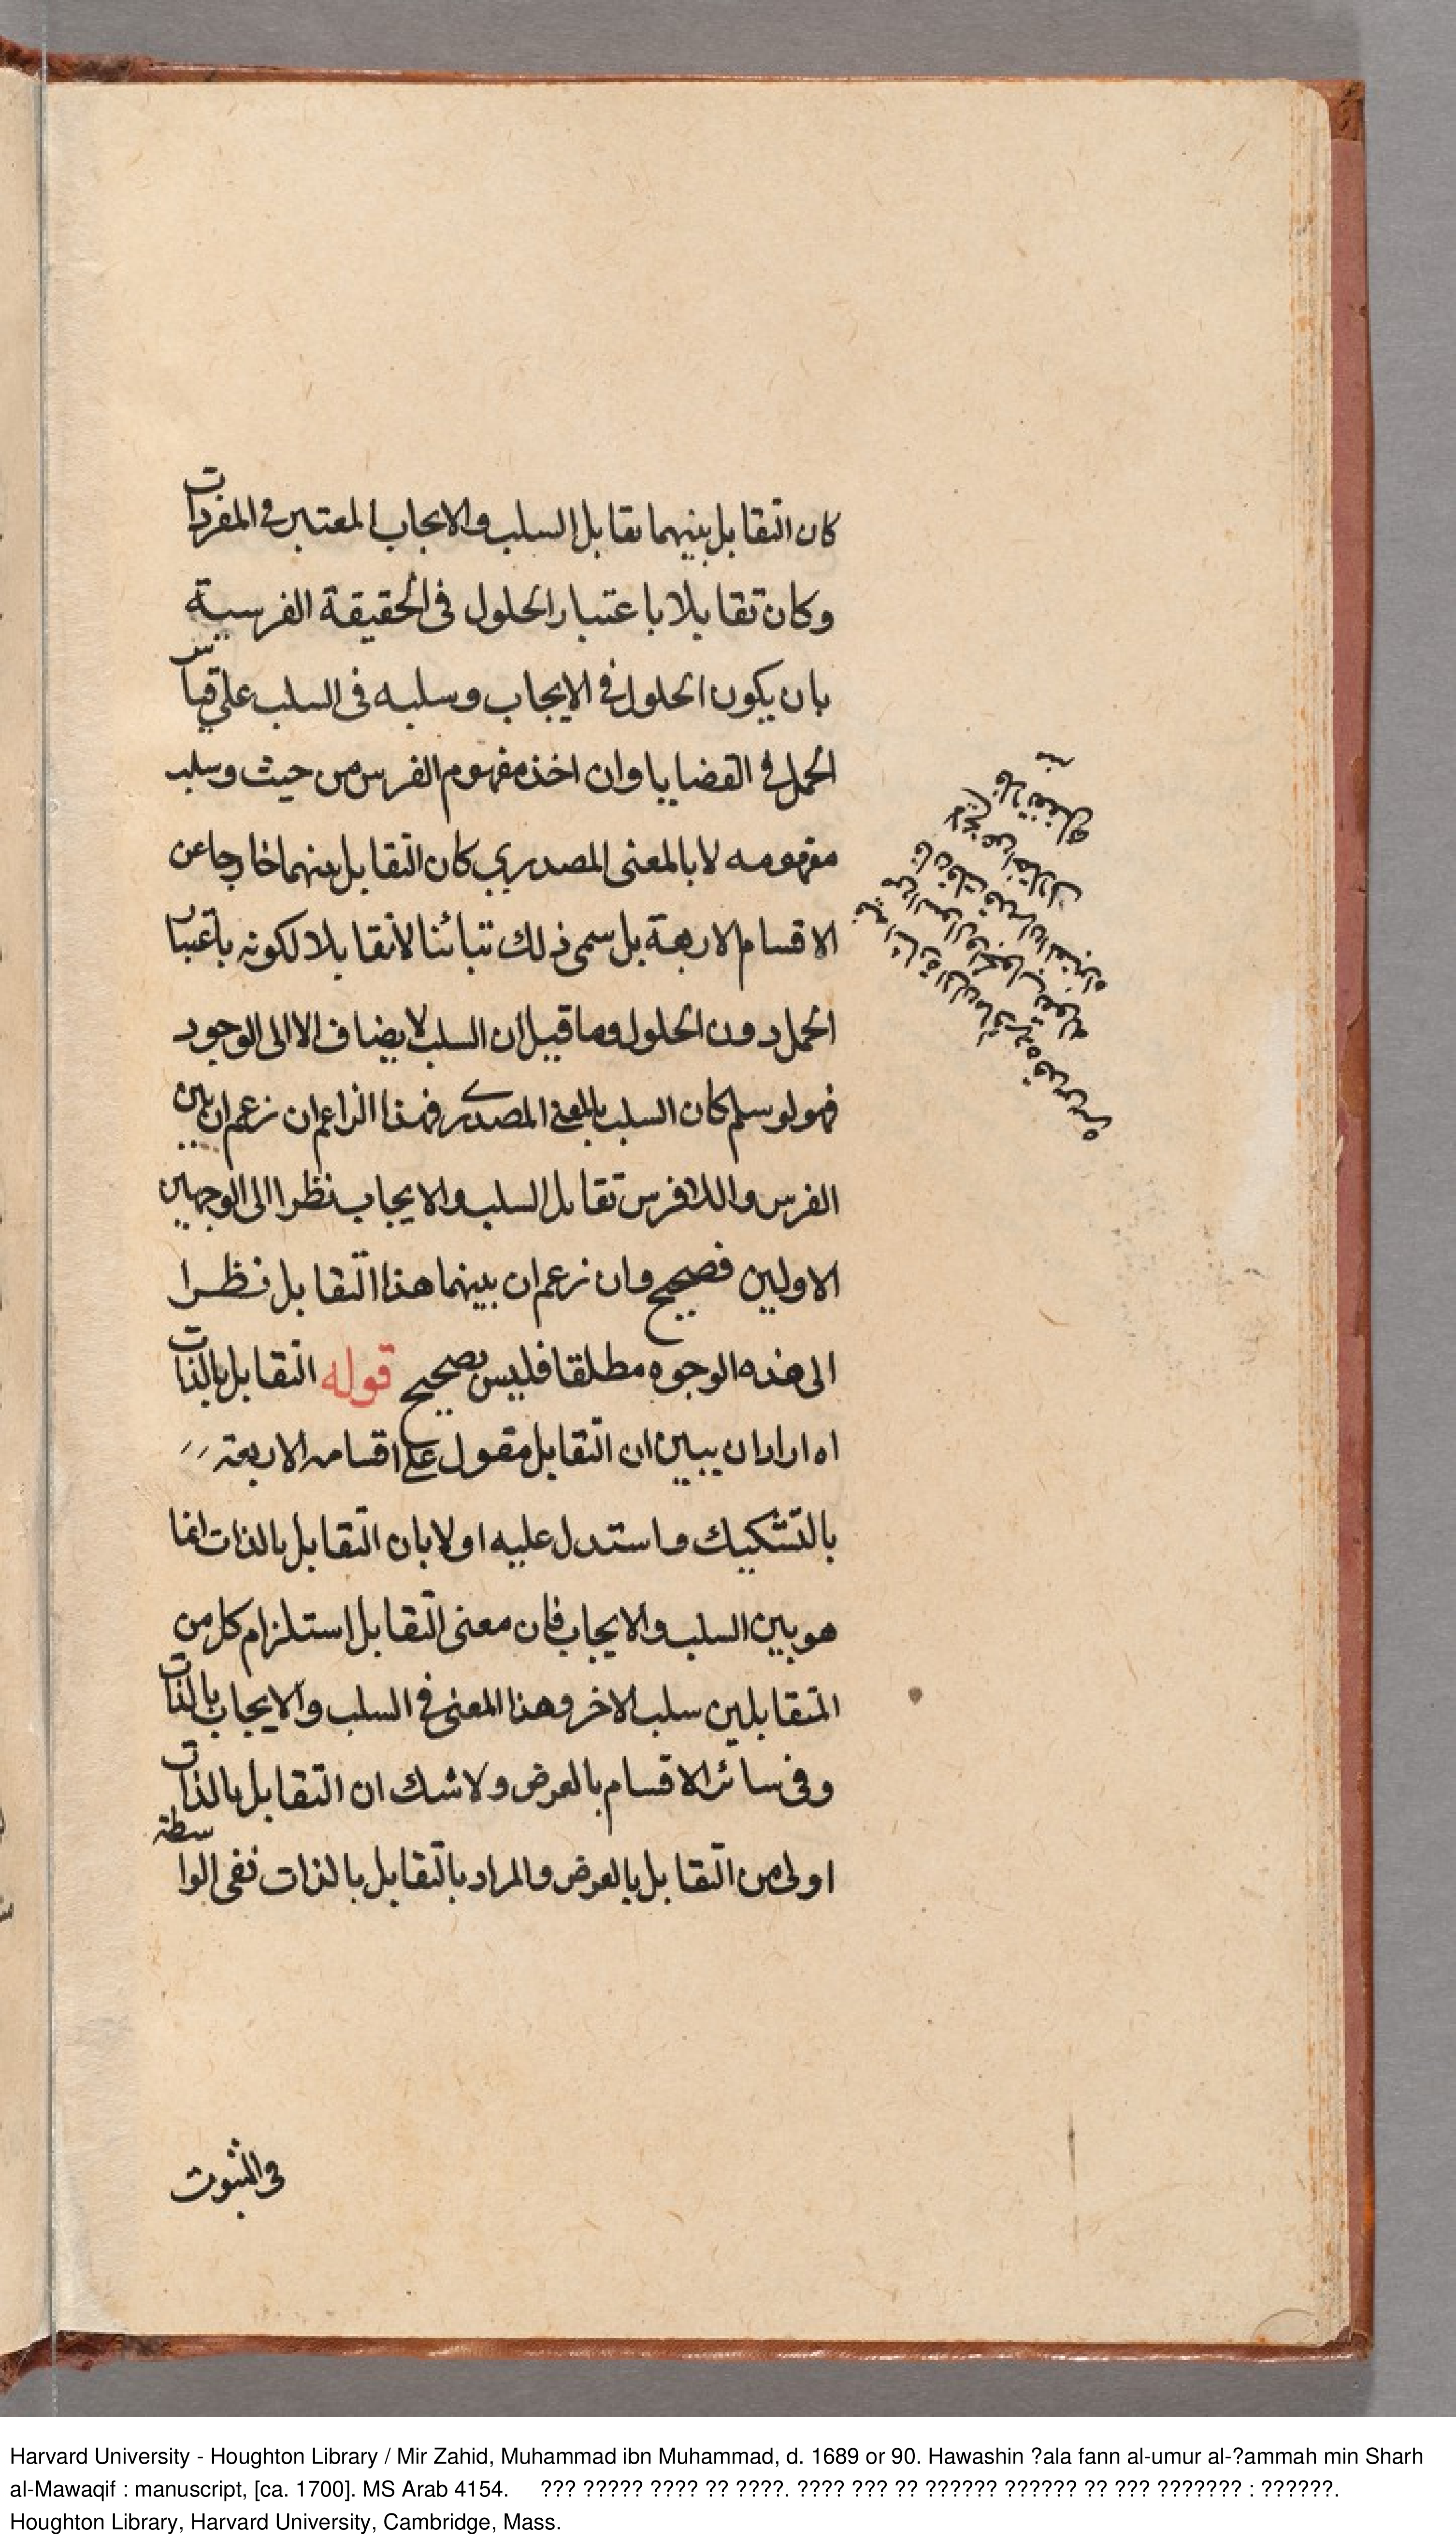 كان التقابل بينهما تقابل السلب والايجاب المعتبر في المفردات
وكان تقابلا باعتبار الحلول فى الحقيقة الفرسية
بان يكون الحلول في الايجاب وسلبه فى السلب علي قياس
الحمل في القضايا وان اخذ مفهوم الفرس من حيث وسلب
مفهومه لا بالمعنى المصدري كان التقابل بينهما خارجا عن
الاقسام الاربعة بل سمى ذلك تبائنا لا تقابلا لكونه باعتبار
الحمل دون الحلول وما قيل ان السلب لا يضاف الا الى الوجود
فهو لو سلم كان السلب بالمعنى المصدرى فهذا الزاعم ان زعم ان بين
الفرس واللافرس تقابل السلب والايجاب نظرا الى الوجهين
الاولين فصحيح وان زعم ان بينهما هذا التقابل نظرا
الى هذه الوجوه مطلقا فليس بصحيح قوله التقابل بالذات
اه اراد ان يبين ان التقابل مقول على اقسامه الاربعة
بالتشكيك واستدل عليه اولا بان التقابل بالذات انما
هو بين السلب والايجاب فان معنى التقابل استلزام كل من
المتقابلين سلب الاخر وهذا المعنى في السلب والايجاب بالذات
وفى سائر الاقسام بالعرض ولا شك ان التقابل بالذات
اولى من التقابل بالعرض والمراد بالتقابل بالذات نفى الواسطة
فى الثبوت
Harvard University - Houghton Library / Mir Zahid, Muhammad ibn Muhammad, d. 1689 or 90. Hawashin ?ala fann al-umur al-?ammah min Sharh
al-Mawaqif : manuscript, [ca. 1700]. MS Arab 4154. ??? ????? ???? ?? ????. ???? ??? ?? ?????? ?????? ?? ??? ??????? : ??????.
Houghton Library, Harvard University, Cambridge, Mass.